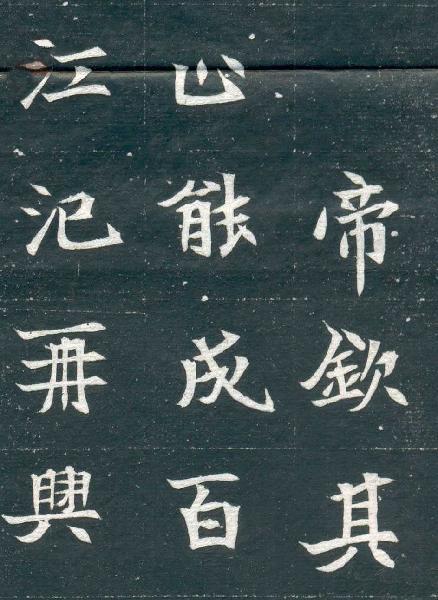 帝欽其
能成百
江汜再興